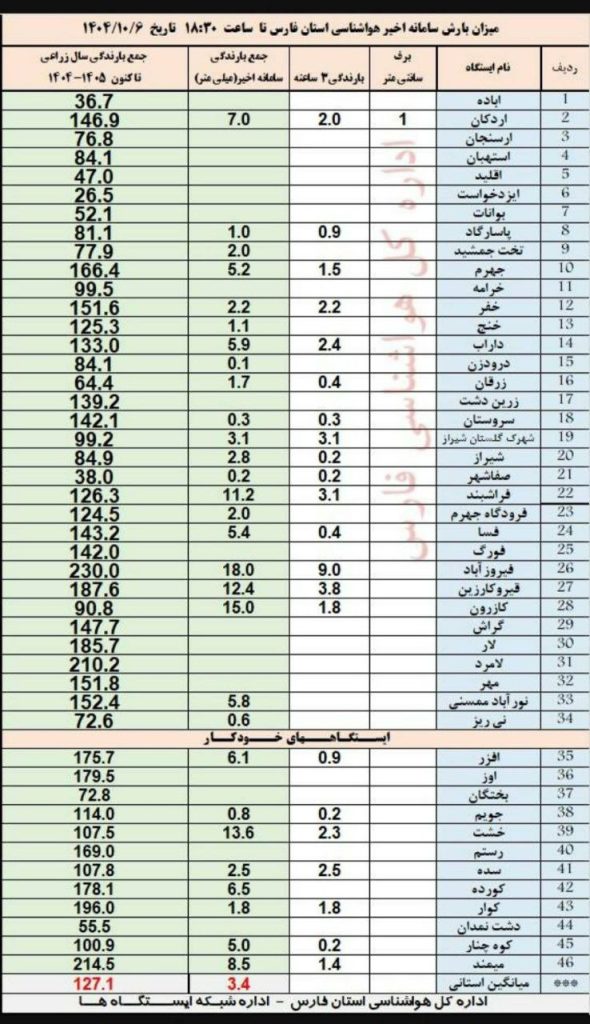 میزان بارش سامانه اخیر هواشناسی استان فارس تا ساعت ۱۸:۳۰ تاریخ ۱۴۰۴/۱۰/۶
ردیف نام ایستگاه برف سانتی متر بارندگی ۳ ساعته جمع بارندگی سامانه اخیر(میلی متر) جمع بارندگی سال زراعی تا کنون ۱۴۰۵-۱۴۰۴
1 اباده 36.7
2 اردکان 1 2.0 7.0 146.9
3 ارسنجان 76.8
4 استهبان 84.1
5 اقلید 47.0
6 ایزدخواست 26.5
7 بوانات 52.1
8 پاسارگاد 0.9 1.0 81.1
9 تخت جمشید 2.0 77.9
10 جهرم 1.5 5.2 166.4
11 خرامه 99.5
12 خفر 2.2 2.2 151.6
13 خنج 1.1 125.3
14 داراب 2.4 5.9 133.0
15 درودزن 0.1 84.1
16 زرقان 0.4 1.7 64.4
17 زرین دشت 139.2
18 سروستان 0.3 0.3 142.1
19 شهرک گلستان شیراز 3.1 3.1 99.2
20 شیراز 0.2 2.8 84.9
21 صفاشهر 0.2 0.2 38.0
22 فراشبند 3.1 11.2 126.3
23 فرودگاه جهرم 2.0 124.5
24 فسا 0.4 5.4 143.2
25 فورگ 142.0
26 فیروزآباد 9.0 18.0 230.0
27 قیروکارزین 3.8 12.4 187.6
28 کازرون 1.8 15.0 90.8
29 گراش 147.7
30 لار 185.7
31 لامرد 210.2
32 مهر 151.8
33 نورآباد ممسنی 5.8 152.4
34 نی ریز 0.6 72.6
ایستگاههای خودکار
35 افزر 0.9 6.1 175.7
36 اوز 179.5
37 بختگان 72.8
38 جویم 0.2 0.8 114.0
39 خشت 2.3 13.6 107.5
40 رستم 169.0
41 سده 2.5 2.5 107.8
42 کورده 6.5 178.1
43 کوار 1.8 1.8 196.0
44 دشت نمدان 55.5
45 کوه چنار 0.2 5.0 100.9
46 میمند 1.4 8.5 214.5
*** میانگین استانی 3.4 127.1
اداره کل هواشناسی استان فارس - اداره شبکه ایستگاه ها
اداره کل هواشناسی فارس